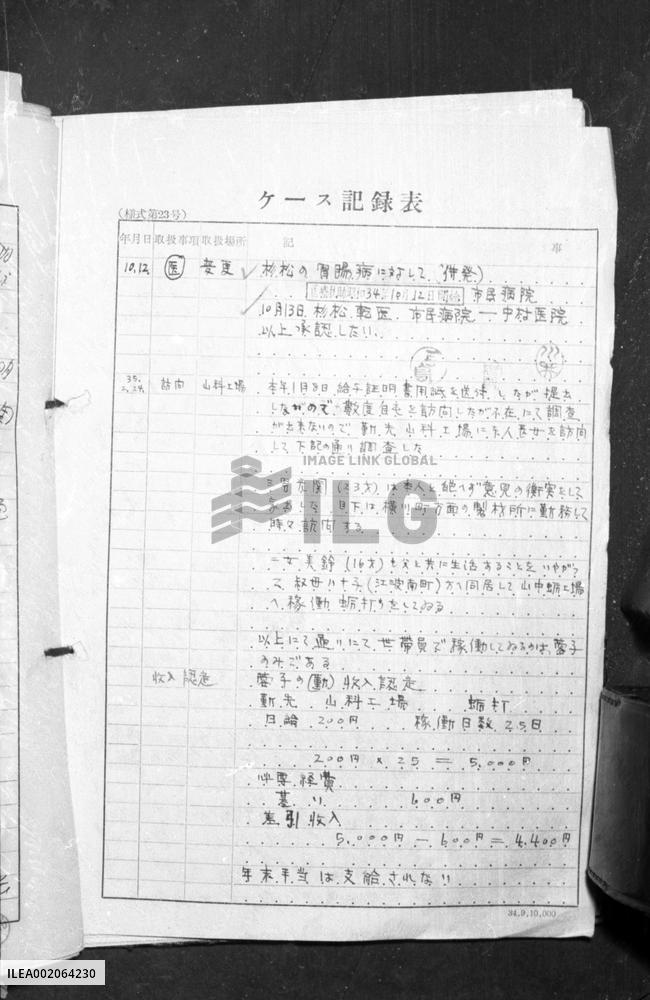 ケース記録表
(様式第23号)
年月日 取扱事項 取扱場所 記 事
10.12 医 変更 杉松の胃腸病に対して、(併発)
医療扶助 34年10月12日開始 市民病院
10月13日 杉松 転医 市民病院 — 中村医院
以上承認したい。
35.2.24 訪問 山科工場 本年1月8日 給与証明書用紙を送付したが提出
しないので 数度自宅を訪問したが不在にて調査
が出来ないので 勤先 山科工場に 本人 長女を訪問
して下記の通り調査した
(23才)は本人と絶へず意見の衝突をして
家出した 目下は横川町方面の製材所に勤務して
時々訪問する
二女 美鈴 (16才)も父と共に生活することをいやがつ
て 叔母 (江波南町)方へ同居して 山中蛎工場
へ稼働 蛎打ちをしてゐる
以上にて通りにて 世帯員で稼働してゐるのは 子
のみである
収入認定 子の(勤)収入認定
勤先 山科工場 蛎打
日給 200円 稼働日数 25日
200円 × 25 = 5,000円
必要経費
基 600円
差引収入
5,000円 — 600円 = 4,400円
年末手当は支給されない
34.9.10,000
IMAGE LINK GLOBAL
ILG
ILEA002064230